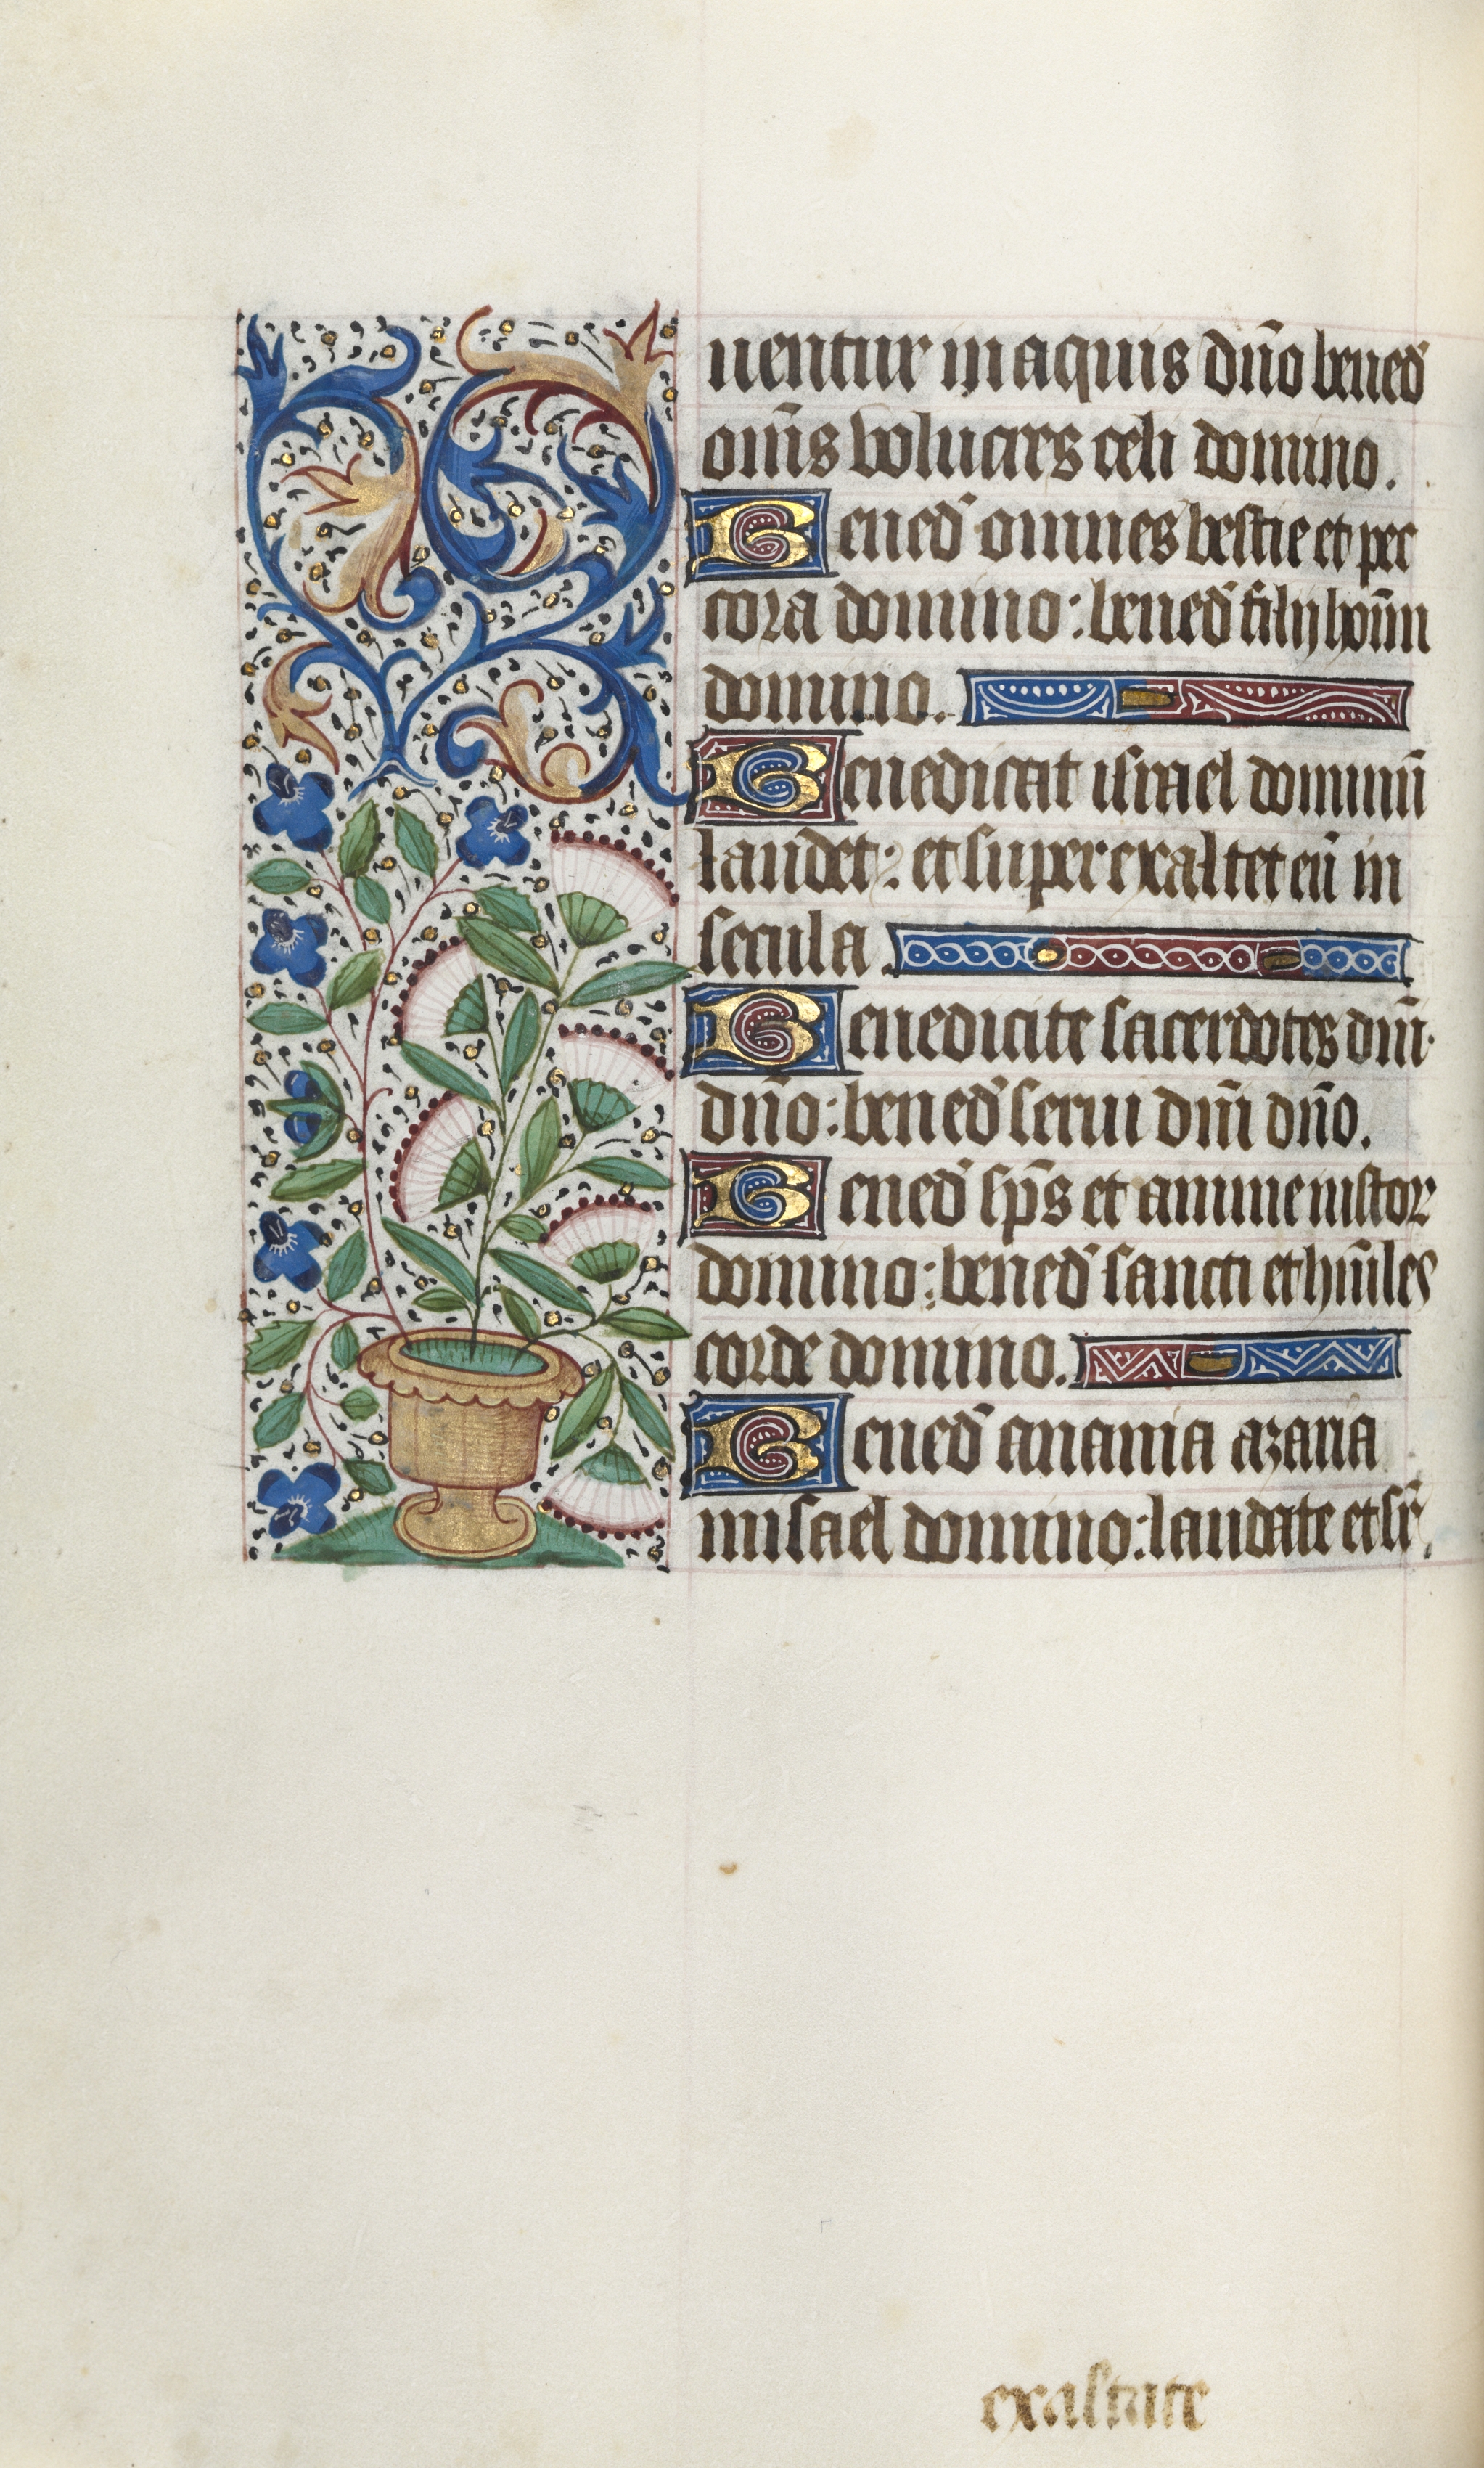 uentur in aquis dn̄o bened̉
om̄s volucres celi domino.
Bened̉ omnes bestie et pec
cora domino: bened̉ filij hoīm
domino.
Benedicat israel dominū
laudet: et superexaltet eū in
secula.
Benedicite sacerdotes dn̄i
dn̄o: bened̉ serui dn̄i dn̄o.
Bened̉ sp̄s et anime iustor
domino: bened̉ sancti et hūiles
corde domino.
Bened̉ anania azaria
misael domino: laudate et sr̄
exaltate